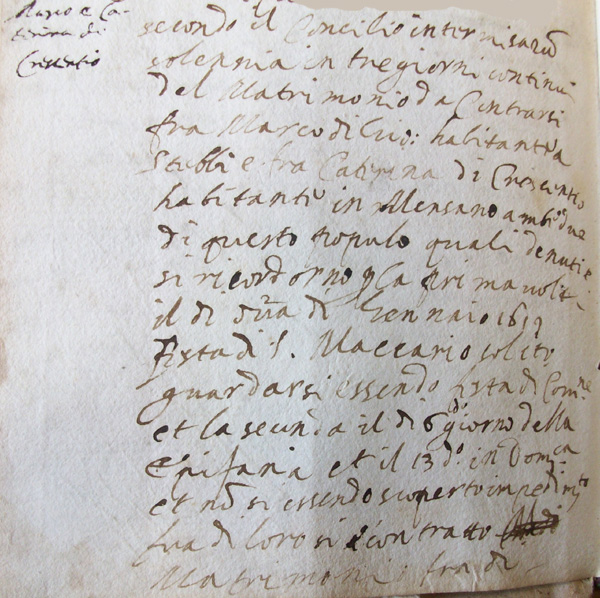 Marco e Ca-
terina di
Crescentio
secondo il Concilio inter misarũ
solennia in tre giorni continui
del Matrimonio da Contrarsi
fra Marco di Gio: habitanti a
Stubbi e fra Caterina di Crescentio
habitanti in Mensano ambidue
di questo populo quali denuti e
si ricordorno p la prima volta
il di di Gennaio
festa di S. Maccario solito
guardarsi essendo festa di Com.ne
et la seconda il di 6 di giorno della
Epifania et il 13 d.o in Dom.ca
et nõ si essendo scoperto impedim.to
fra di loro si è contratto
Matrimonio fra di